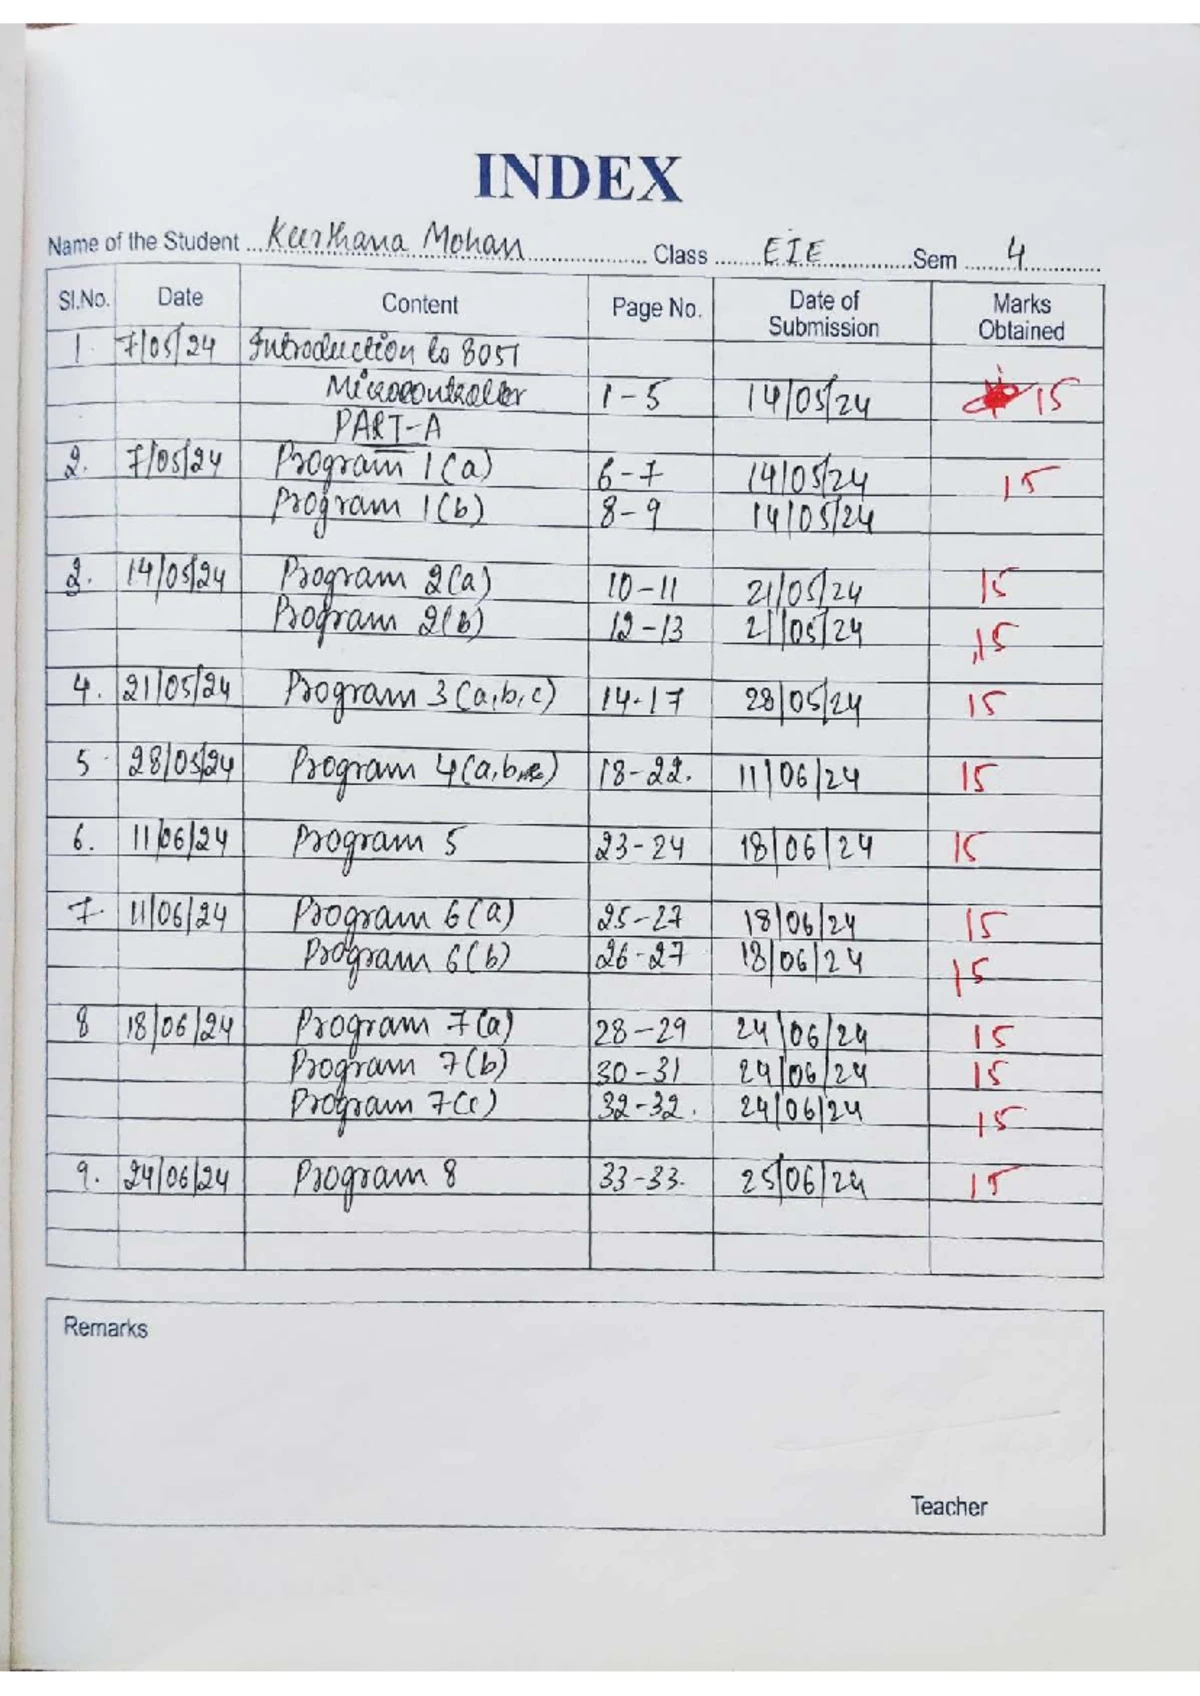 INDEX
Name of the Student Keerthana Mohan Class EIE Sem 4
Sl.No. Date Content Page No. Date of Submission Marks Obtained
1. 7/05/24 Introduction to 8051
Microcontroller 1-5 14/05/24 15
PART-A
2. 7/05/24 Program 1(a) 6-7 14/05/24 15
Program 1(b) 8-9 14/05/24
3. 14/05/24 Program 2(a) 10-11 21/05/24 15
Program 2(b) 12-13 21/05/24 15
4. 21/05/24 Program 3(a,b,c) 14-17 28/05/24 15
5. 28/05/24 Program 4(a,b,c) 18-22. 11/06/24 15
6. 11/06/24 Program 5 23-24 18/06/24 15
7 11/06/24 Program 6(a) 25-27 18/06/24 15
Program 6(b) 26-27 18/06/24 15
8 18/06/24 Program 7(a) 28-29 24/06/24 15
Program 7(b) 30-31 24/06/24 15
Program 7(c) 32-32. 24/06/24 15
9. 24/06/24 Program 8 33-33. 25/06/24 15
Remarks
Teacher